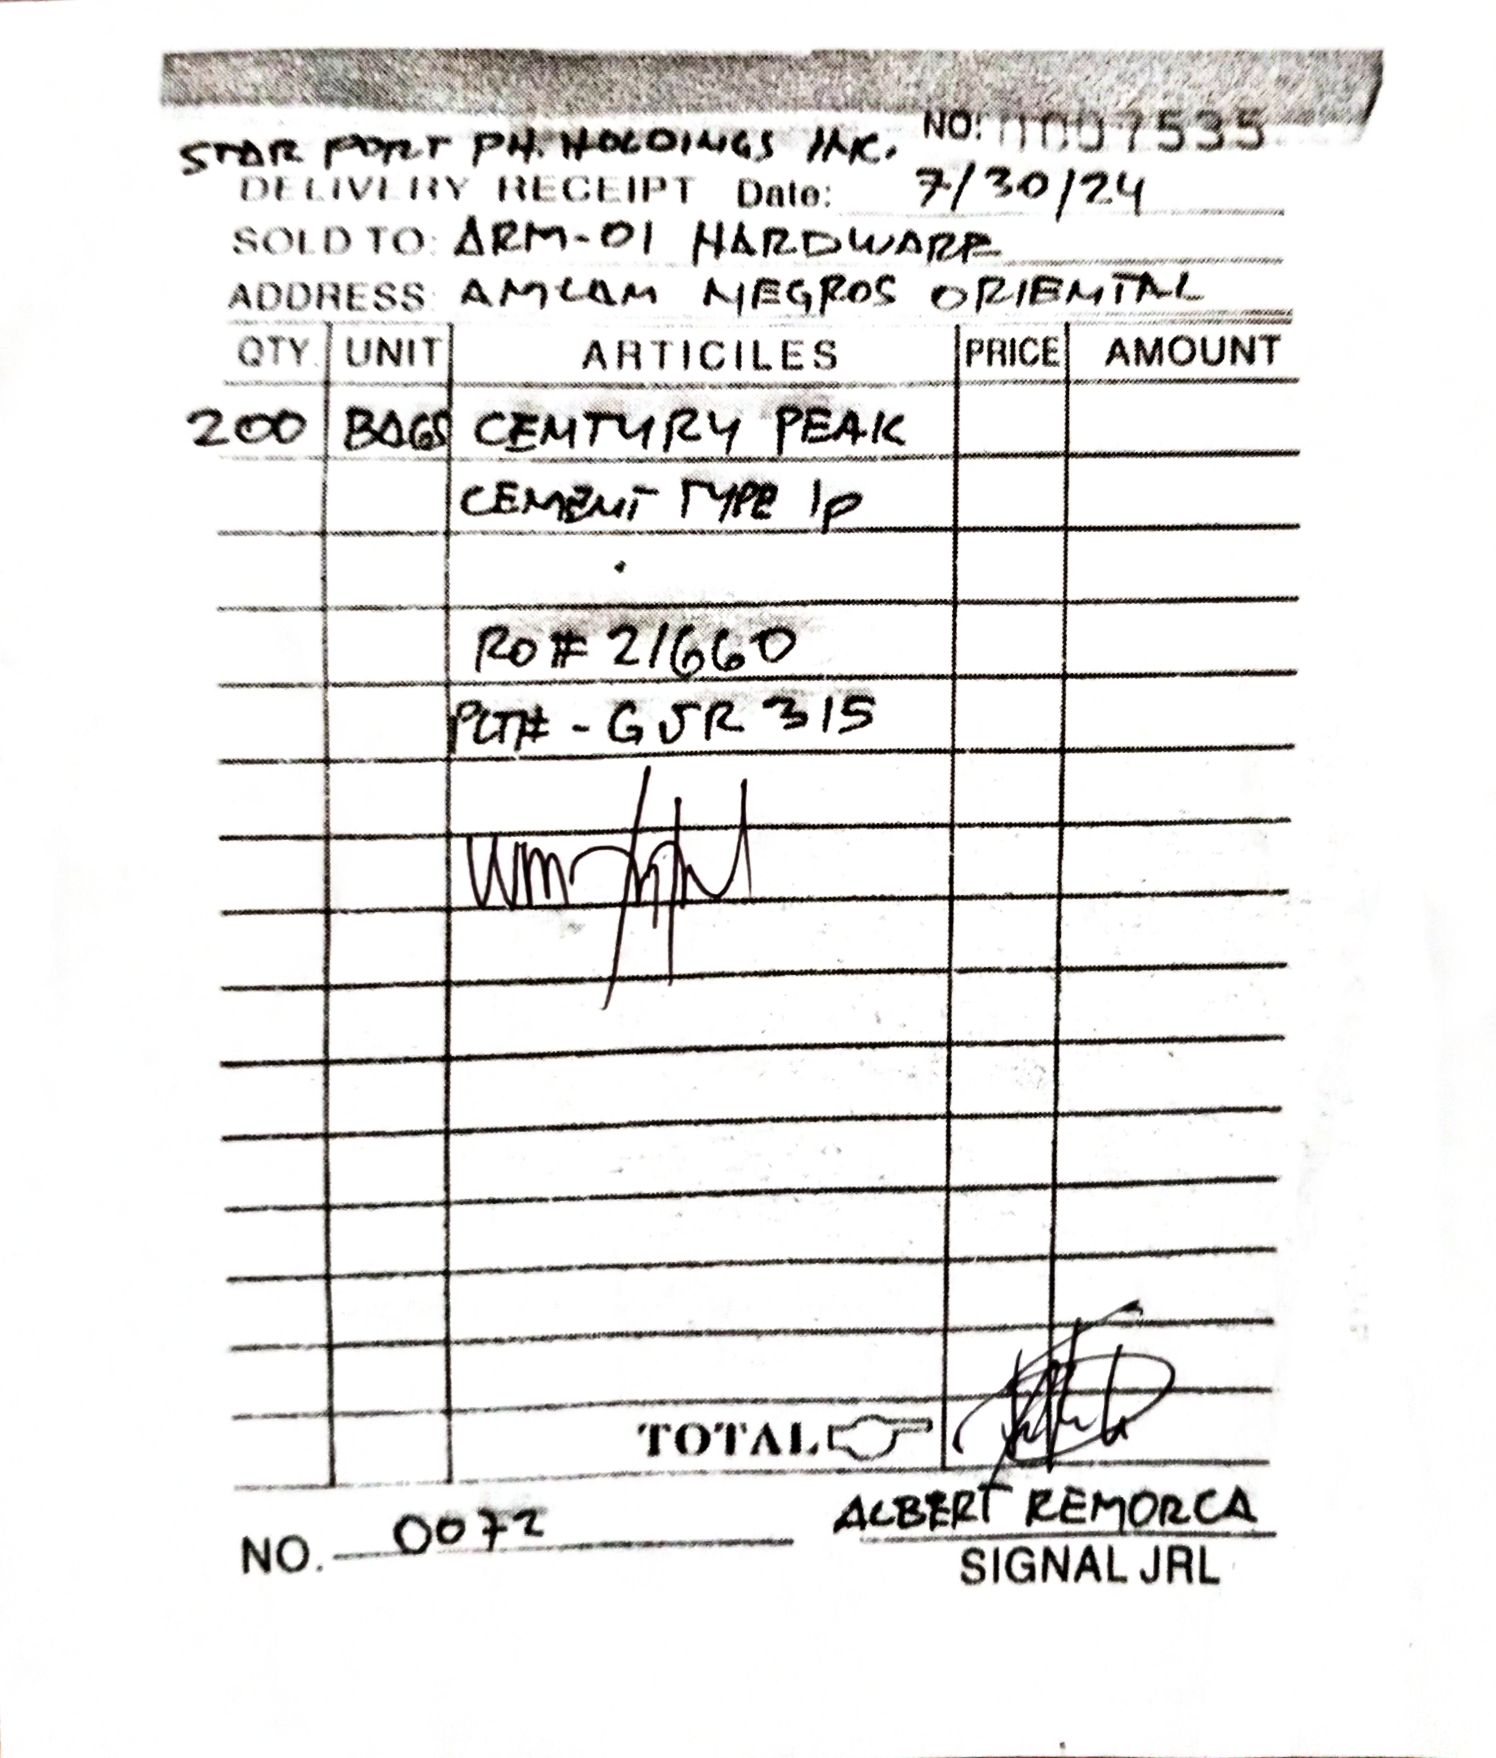 STAR PORT PH. HOLDINGS INC. NO: 0007535
DELIVERY RECEIPT Date: 7/30/24
SOLD TO: ARM-01 HARDWARE
ADDRESS: AMLAN NEGROS ORIENTAL
QTY. UNIT ARTICILES PRICE AMOUNT
200 BAGS CENTURY PEAK
CEMENT TYPE 1P
RO# 21660
PLT# - GJR 315
TOTAL
ALBERT REMORCA
NO. 0072
SIGNAL JRL